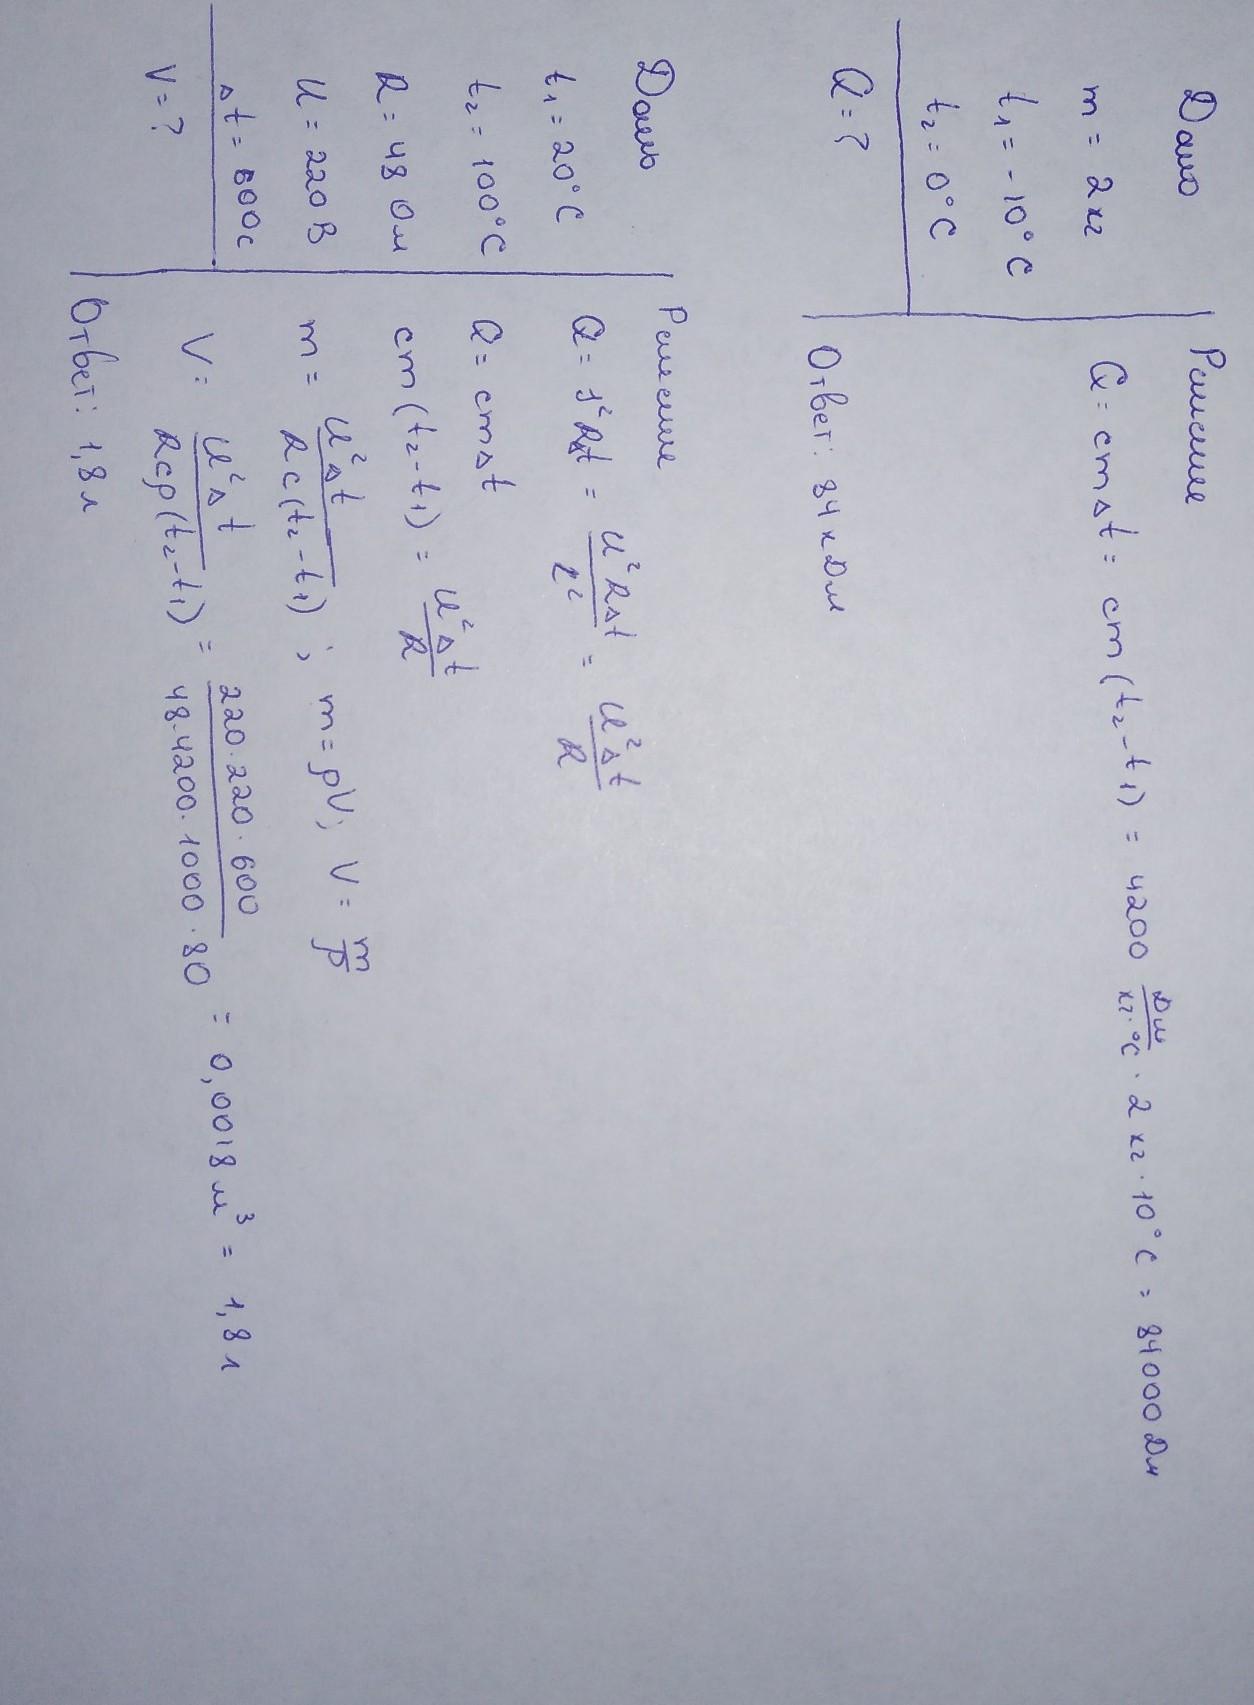 Дано
m = 2 кг
t₁ = -10°C
t₂ = 0°C
Q = ?
Решение
Q = cmΔt = cm(t₂-t₁) = 4200 Дж/кг·°C · 2 кг · 10°C = 84000 Дж
Ответ: 84 кДж
Дано
t₁ = 20°C
t₂ = 100°C
R = 48 Ом
U = 220 В
Δt = 600с
V = ?
Решение
Q = I²RΔt = U²RΔt/R² = U²Δt/R
Q = cmΔt
cm(t₂-t₁) = U²Δt/R
m = U²Δt/Rc(t₂-t₁) ; m = ρV; V = m/ρ
V = U²Δt/Rcρ(t₂-t₁) = 220·220·600/48·4200·1000·80 = 0,0018 м³ = 1,8 л
Ответ: 1,8 л